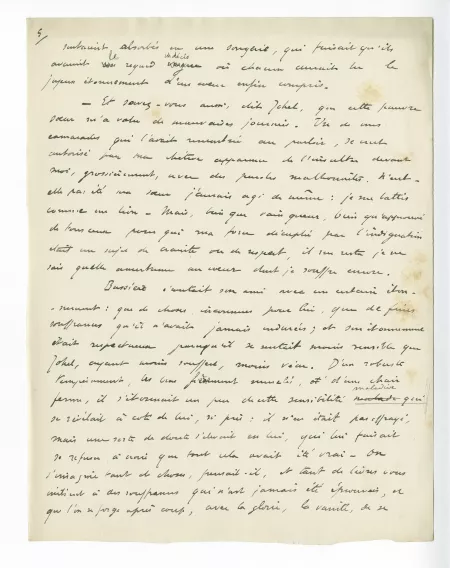 5/
sentaient absorbés en une songerie, qui faisait qu'ils
avaient le regard indécis où chacun aurait lu le
joyeux étonnement d'un cœur enfin compris.
— Et savez-vous aussi, dit Johel, que cette pauvre
sœur m'a valu de mauvaises journées. Un de mes
camarades qui l'avait rencontrée au parloir, se crut
autorisé par ma chétive apparence de l'insulter devant
moi, grossièrement, avec des paroles malhonnêtes. N'eut-
elle pas été ma sœur j'aurais agi de même : je me battis
comme un lion — Mais, bien que vainqueur, bien qu'approuvé
de tous ceux pour qui ma force décuplée par l'indignation
était un sujet de crainte ou de respect, il m'en reste je ne
sais quelle amertume au cœur dont je souffre encore.
Bussière écoutait son ami avec un certain éton-
-nement : que de choses inconnues pour lui, que de fines
souffrances qu'il n'avait jamais endurées ; et son étonnement
était respectueux parce qu'il se sentait moins sensible que
Johel, ayant moins souffert, moins vécu. D'un robuste
tempérament, les bras fièrement musclés, et d'une chair
ferme, il s'étonnait un peu de cette sensibilité maladive qui
se révélait à côté de lui, si près : il n'en était pas effrayé,
mais une sorte de doute s'élevait en lui, qui lui faisait
se refuser à croire que tout cela avait été vrai — On
s'imagine tant de choses, pensait-il, et tant de livres vous
initient à des souffrances qui n'ont jamais été éprouvées, et
que l'on se forge après coup, avec la gloire, la vanité, de se